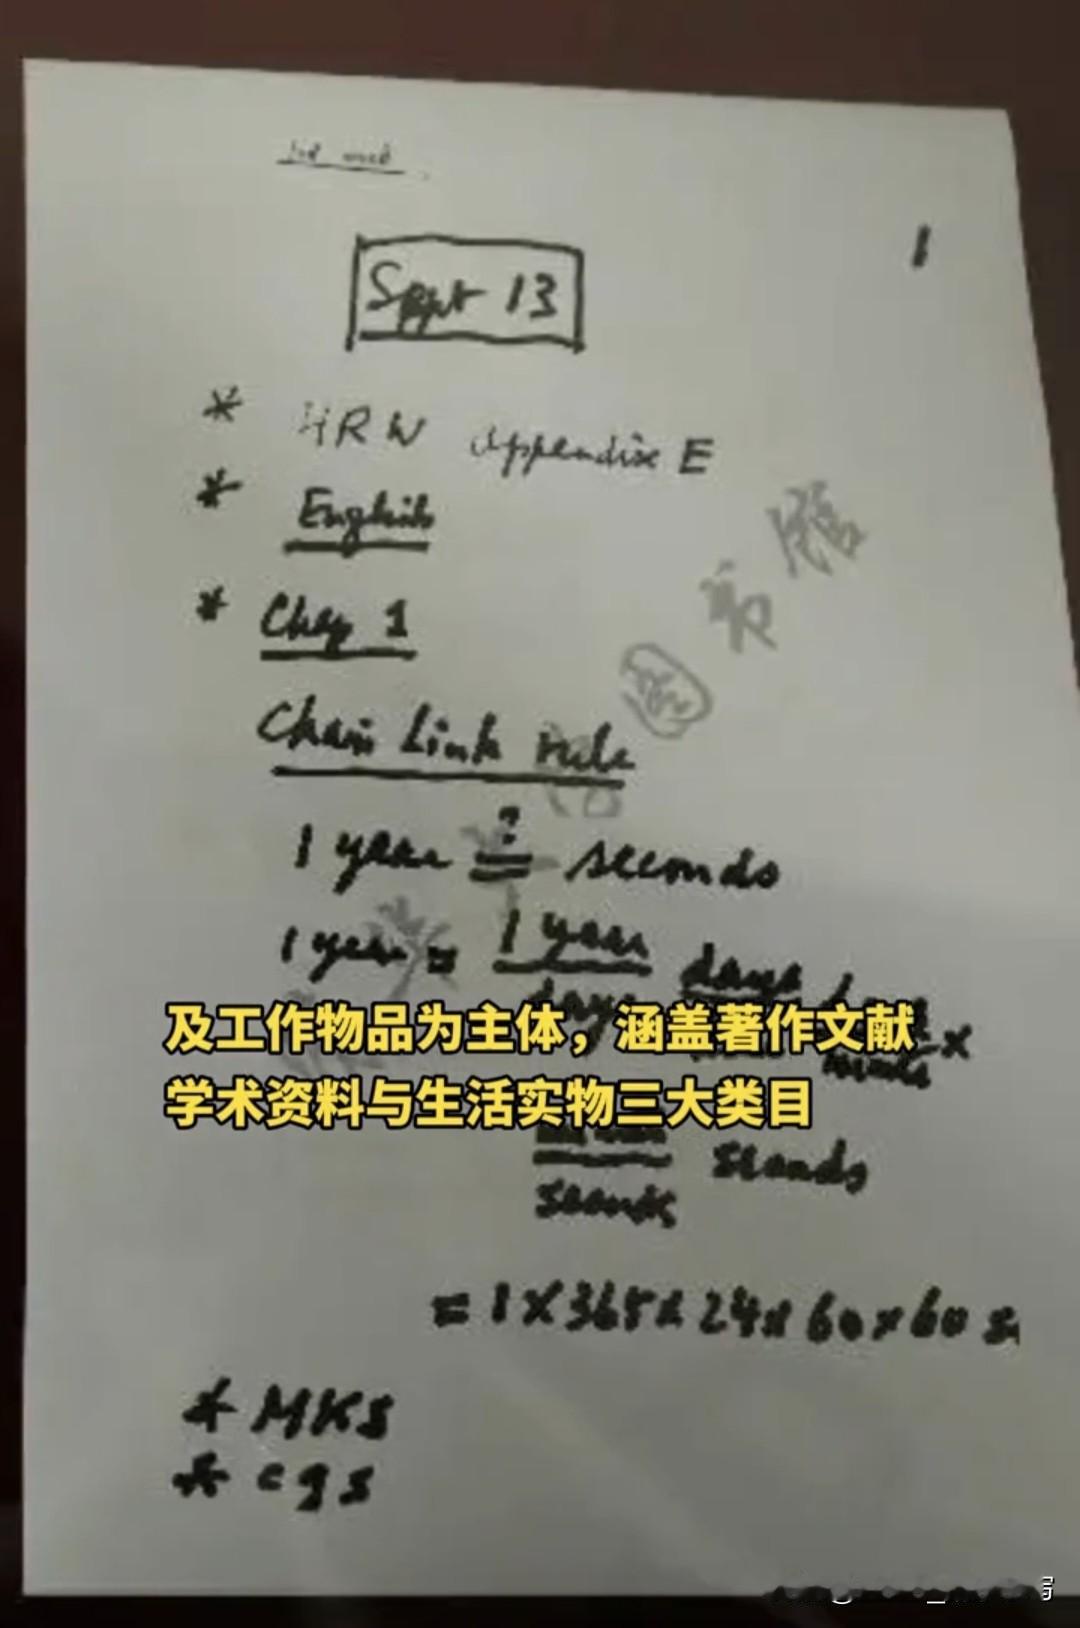 Sept 13
1
* HRW Appendix E
* English
* Chap 1
Chain Link rule
1 year ?= seconds
1 year = 1 year days
及工作物品为主体，涵盖著作文献
学术资料与生活实物三大类目
seconds
seconds
= 1 × 365 × 24 × 60 × 60
* MKS
* cgs
图书馆